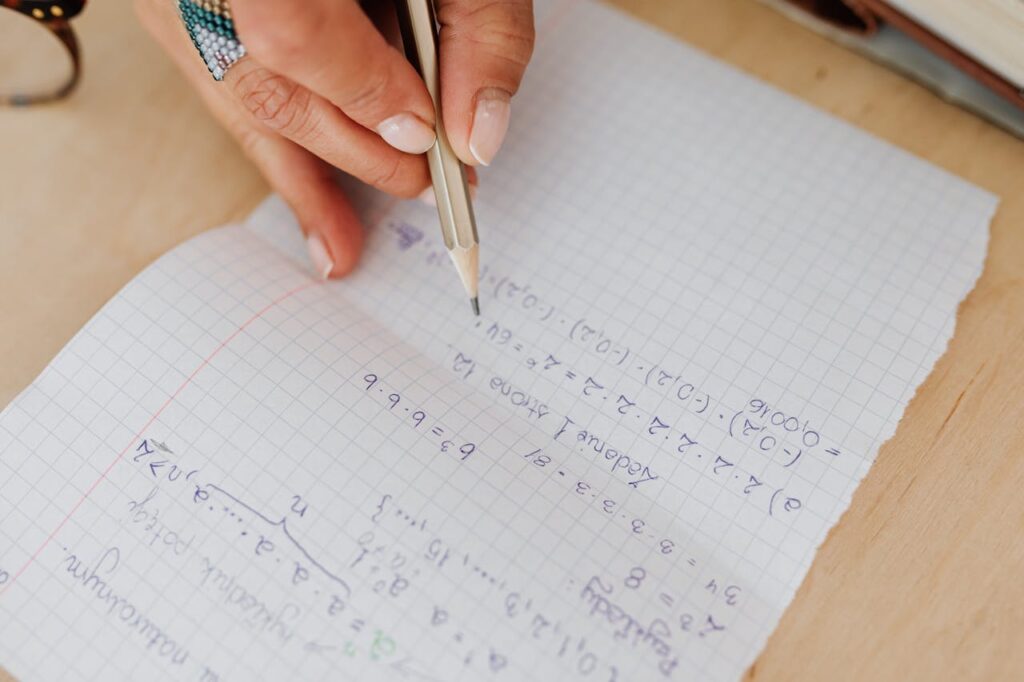 naturalnym.
aⁿ → wykładnik potęgi
= a · a · a · .... · a, n≥2
n
a¹ = a a⁰=1
a≠0
{0,1,2,3,....,15,...}
Przykłady:
2³ = 8
3⁴ = 3·3·3·3 = 81
b³ = b·b·b
Zadanie 1 strona 12.
a) 2·2·2·2·2·2 = 2⁶ = 64
(-0,2)·(-0,2)·(-0,2)·(-0,2)=
= 0,0016